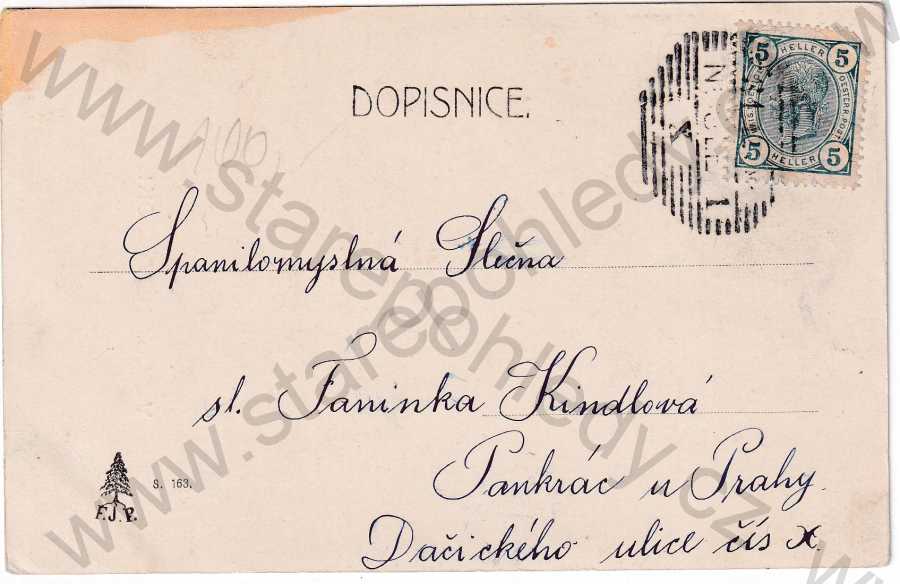 DOPISNICE.
5 HELLER 5
5 HELLER 5
Spanilomyslná Slečna
sl. Faninka Kindlová
Pankrác u Prahy
Dačického ulice čís x.
F.J.P.
S. 163.
www.starepohledy.cz
www.starepohledy.cz